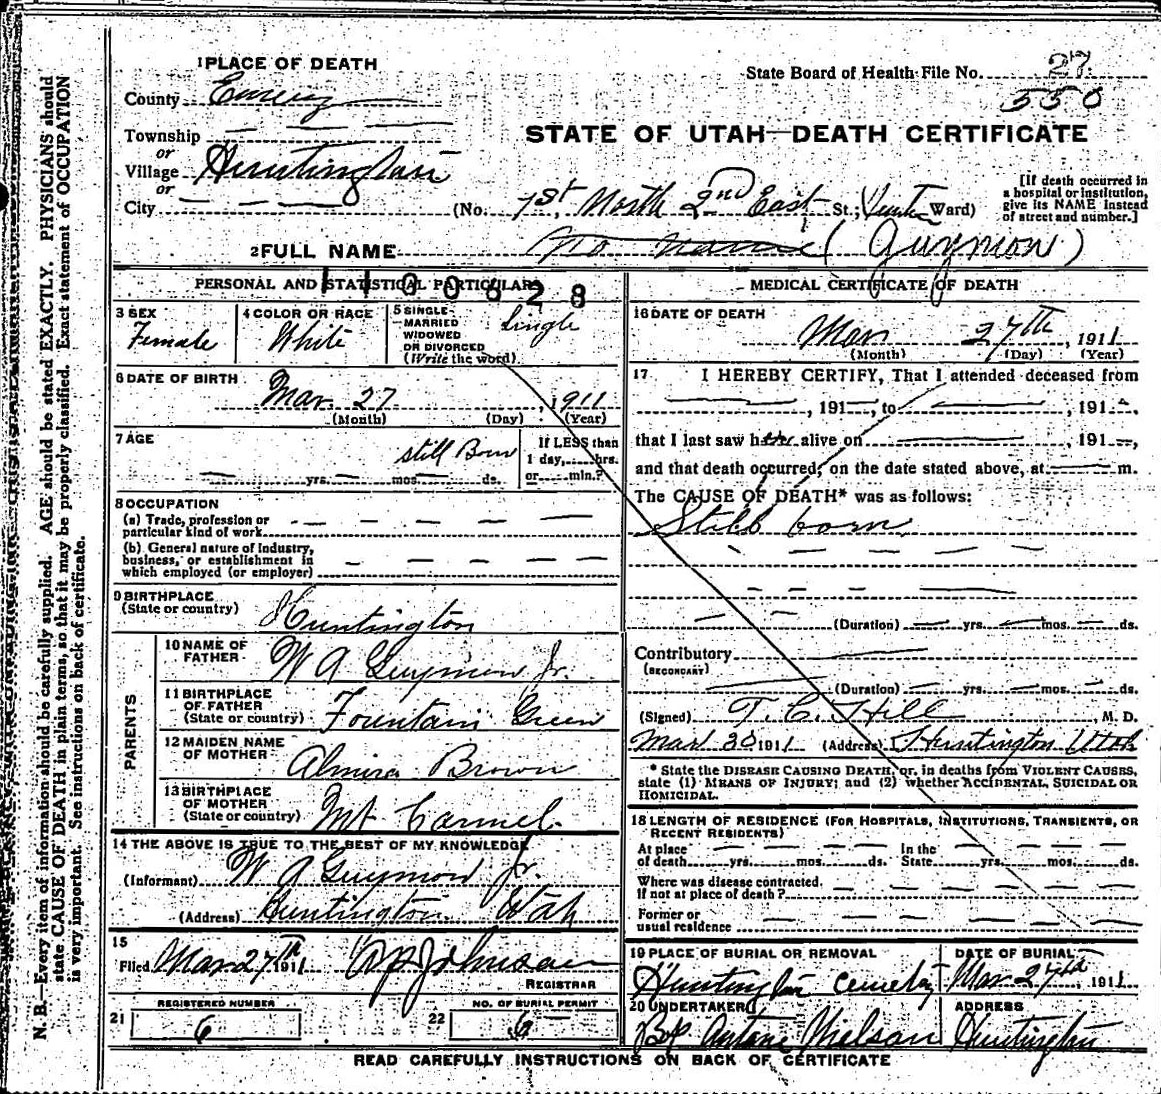 1 PLACE OF DEATH
State Board of Health File No. 27
550
County Emery
Township
or
Village Huntington
or
City
STATE OF UTAH—DEATH CERTIFICATE
[If death occurred in a hospital or institution, give its NAME instead of street and number.]
(No. 1st North 2nd East St.; Ward)
2 FULL NAME No Name (Guymon)
1100828
PERSONAL AND STATISTICAL PARTICULARS
3 SEX
Female
4 COLOR OR RACE
White
5 SINGLE
MARRIED
WIDOWED
OR DIVORCED
(Write the word)
Single
6 DATE OF BIRTH
Mar. 27, 1911
(Month) (Day) (Year)
7 AGE
still Born
yrs. mos. ds.
If LESS than
1 day, hrs.
or min.?
8 OCCUPATION
(a) Trade, profession or
particular kind of work
(b) General nature of industry,
business, or establishment in
which employed (or employer)
9 BIRTHPLACE
(State or country)
Huntington
PARENTS
10 NAME OF
FATHER
W A Guymon Jr.
11 BIRTHPLACE
OF FATHER
(State or country)
Fountain Green
12 MAIDEN NAME
OF MOTHER
Almira Brown
13 BIRTHPLACE
OF MOTHER
(State or country)
Mt Carmel
14 THE ABOVE IS TRUE TO THE BEST OF MY KNOWLEDGE
(Informant) W A Guymon Jr.
(Address) Huntington Utah
15
Filed Mar 27th 1911 Johnson
REGISTRAR
REGISTERED NUMBER
21 6
NO. OF BURIAL PERMIT
22 6
MEDICAL CERTIFICATE OF DEATH
16 DATE OF DEATH
Mar 27th, 1911
(Month) (Day) (Year)
17 I HEREBY CERTIFY, That I attended deceased from
, 191 , to , 191 ,
that I last saw her alive on , 191 ,
and that death occurred, on the date stated above, at m.
The CAUSE OF DEATH* was as follows:
Still born
(Duration) yrs. mos. ds.
Contributory
(SECONDARY)
(Duration) yrs. mos. ds.
(Signed) T. C. Hill, M. D.
Mar 30 1911 (Address) Huntington Utah
* State the DISEASE CAUSING DEATH, or, in deaths from VIOLENT CAUSES,
state (1) MEANS OF INJURY; and (2) whether ACCIDENTAL, SUICIDAL OR
HOMICIDAL.
18 LENGTH OF RESIDENCE (FOR HOSPITALS, INSTITUTIONS, TRANSIENTS, OR
RECENT RESIDENTS)
At place
of death yrs. mos. ds.
In the
State yrs. mos. ds.
Where was disease contracted,
if not at place of death?
Former or
usual residence
19 PLACE OF BURIAL OR REMOVAL
Huntington Cemetery
DATE OF BURIAL
Mar 27th 1911
20 UNDERTAKER
Nielson
ADDRESS
Huntington
READ CAREFULLY INSTRUCTIONS ON BACK OF CERTIFICATE
N. B.—Every item of information should be carefully supplied. AGE should be stated EXACTLY. PHYSICIANS should
state CAUSE OF DEATH in plain terms, so that it may be properly classified. Exact statement of OCCUPATION
is very important. See instructions on back of certificate.